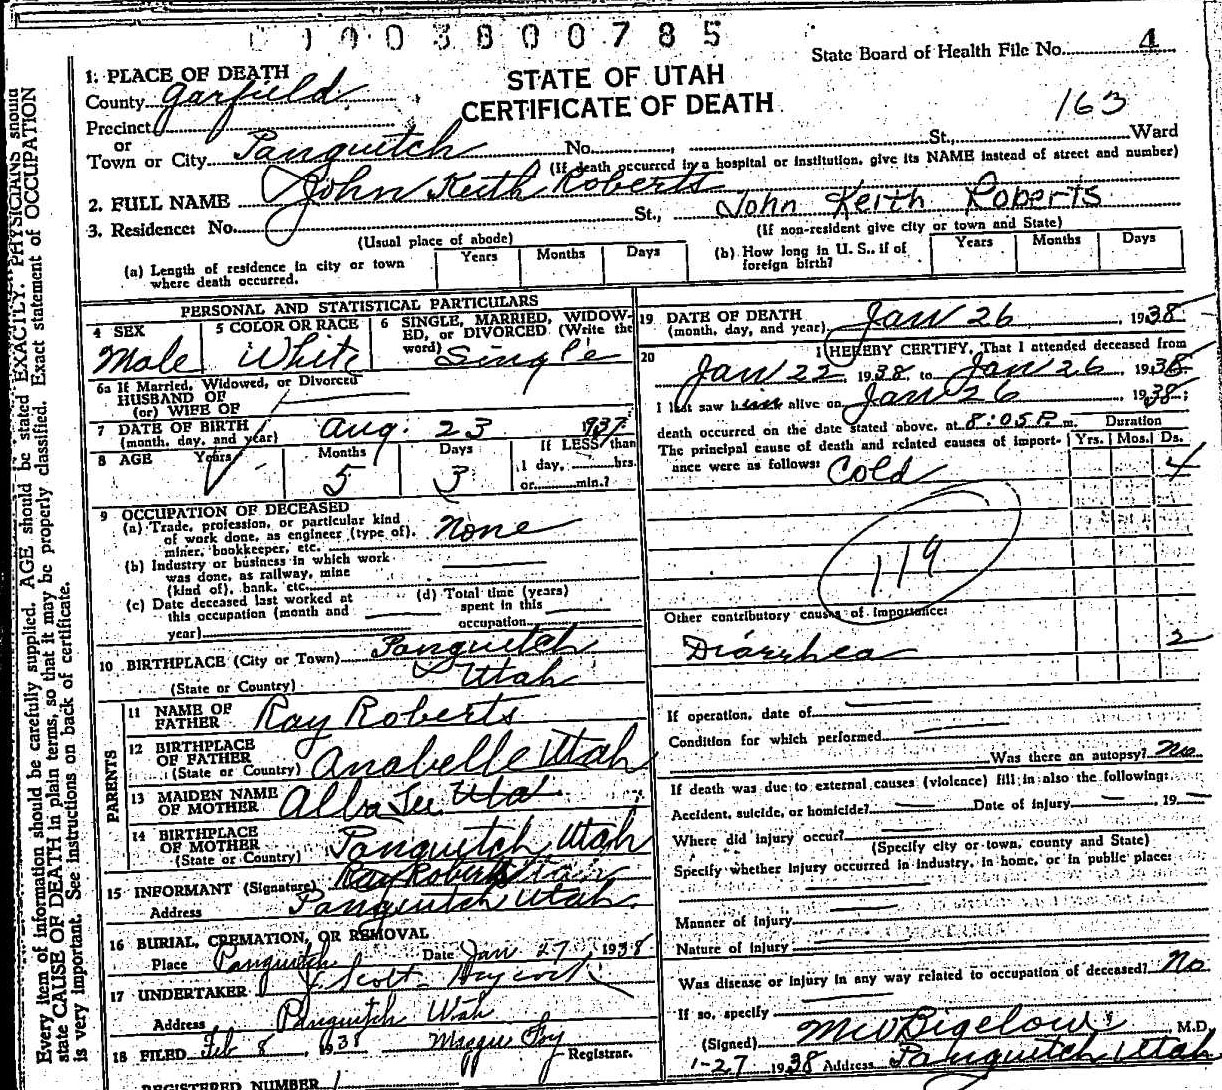 0100 3800785
State Board of Health File No. 4
STATE OF UTAH
CERTIFICATE OF DEATH
163
1. PLACE OF DEATH
County Garfield
Precinct
or
Town or City Panguitch No. , St., Ward
(If death occurred in a hospital or institution, give its NAME instead of street and number)
2. FULL NAME John Keith Roberts
John Keith Roberts
3. Residence: No. St.,
(Usual place of abode) (If non-resident give city or town and State)
(a) Length of residence in city or town where death occurred. Years Months Days
(b) How long in U. S., if of foreign birth? Years Months Days
PERSONAL AND STATISTICAL PARTICULARS
4 SEX Male
5 COLOR OR RACE White
6 SINGLE, MARRIED, WIDOWED, or DIVORCED (Write the word) Single
6a If Married, Widowed, or Divorced
HUSBAND OF
(or) WIFE OF
7 DATE OF BIRTH
(month, day, and year) Aug. 23 1937
8 AGE Years Months 5 Days 3
If LESS than
1 day, hrs.
or min.?
9 OCCUPATION OF DECEASED
(a) Trade, profession, or particular kind
of work done, as engineer (type of),
miner, bookkeeper, etc. None
(b) Industry or business in which work
was done, as railway, mine
(kind of), bank, etc.
(c) Date deceased last worked at
this occupation (month and
year)
(d) Total time (years)
spent in this
occupation
10 BIRTHPLACE (City or Town) Panguitch
(State or Country) Utah
PARENTS
11 NAME OF FATHER Ray Roberts
12 BIRTHPLACE OF FATHER
(State or Country) Anabelle Utah
13 MAIDEN NAME OF MOTHER Alba
14 BIRTHPLACE OF MOTHER
(State or Country) Panguitch Utah
15 INFORMANT (Signature) Ray Roberts
Address Panguitch Utah
16 BURIAL, CREMATION, OR REMOVAL
Place Panguitch Date Jan 27 1938
17 UNDERTAKER Scott Haycock
Address Panguitch Utah
18 FILED Feb 8, 1938 Maggie Foy Registrar.
REGISTERED NUMBER 1
19 DATE OF DEATH
(month, day, and year) Jan 26, 1938
20 I HEREBY CERTIFY, That I attended deceased from
Jan 22 1938, to Jan 26, 1938
I last saw him alive on Jan 26 1938;
death occurred on the date stated above, at 8:05 P. m.
The principal cause of death and related causes of importance were as follows:
Duration
Yrs. Mos. Ds.
Cold 4
119
Other contributory causes of importance:
Diarrhea 2
If operation, date of
Condition for which performed
Was there an autopsy? No
If death was due to external causes (violence) fill in also the following:
Accident, suicide, or homicide? Date of injury , 19
Where did injury occur?
(Specify city or town, county and State)
Specify whether injury occurred in industry, in home, or in public place:
Manner of injury
Nature of injury
Was disease or injury in any way related to occupation of deceased? No
If so, specify
(Signed) M W Bigelow, M.D.
1-27 1938 Address Panguitch Utah
Every item of information should be carefully supplied. AGE should be stated EXACTLY. PHYSICIANS should
state CAUSE OF DEATH in plain terms, so that it may be properly classified. Exact statement of OCCUPATION
is very important. See instructions on back of certificate.